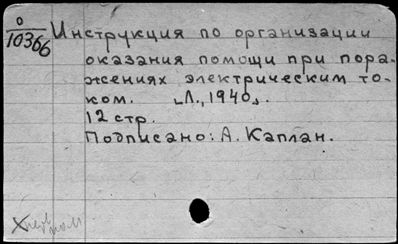 0
10366
Инструкция по организации
оказания помощи при пора-
жениях электрическим то-
ком. [Л., 1940].
12 стр.
Подписано: А. Каплан.